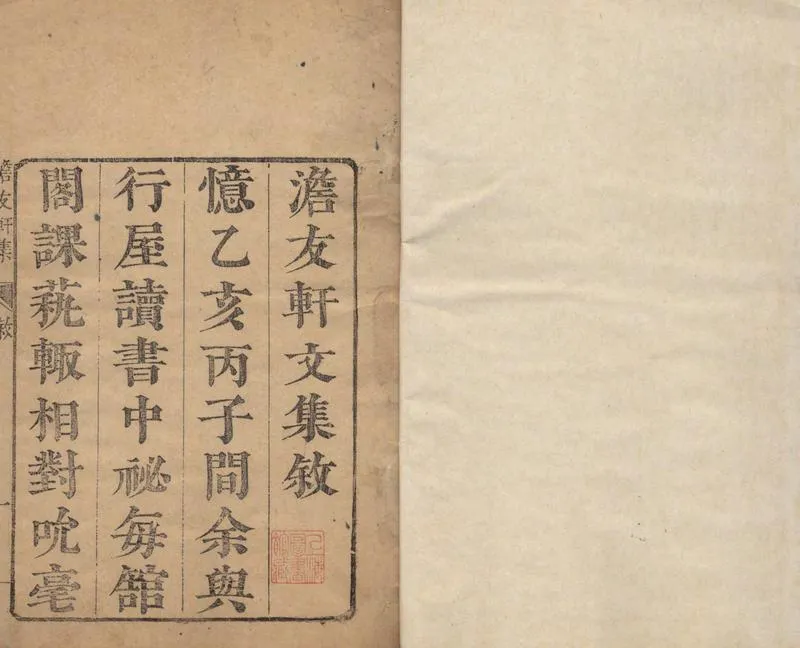 澹友軒文集敘
憶乙亥丙子間余與
行屋讀書中祕每館
閣課蓺輙相對吮毫
友軒集
敘
一